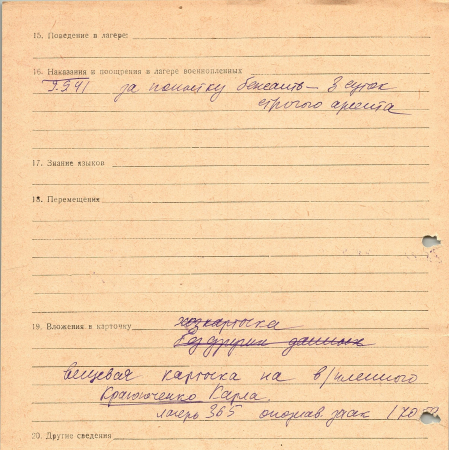 15. Поведение в лагере:
16. Наказания и поощрения в лагере военнопленных
9.9.41 за попытку бежать – 3 суток
строгого ареста
17. Знание языков
18. Перемещения
19. Вложения в карточку хозкарточка
без других данных
вещевая карточка на в/пленного
Карла
лагерь 365
20. Другие сведения